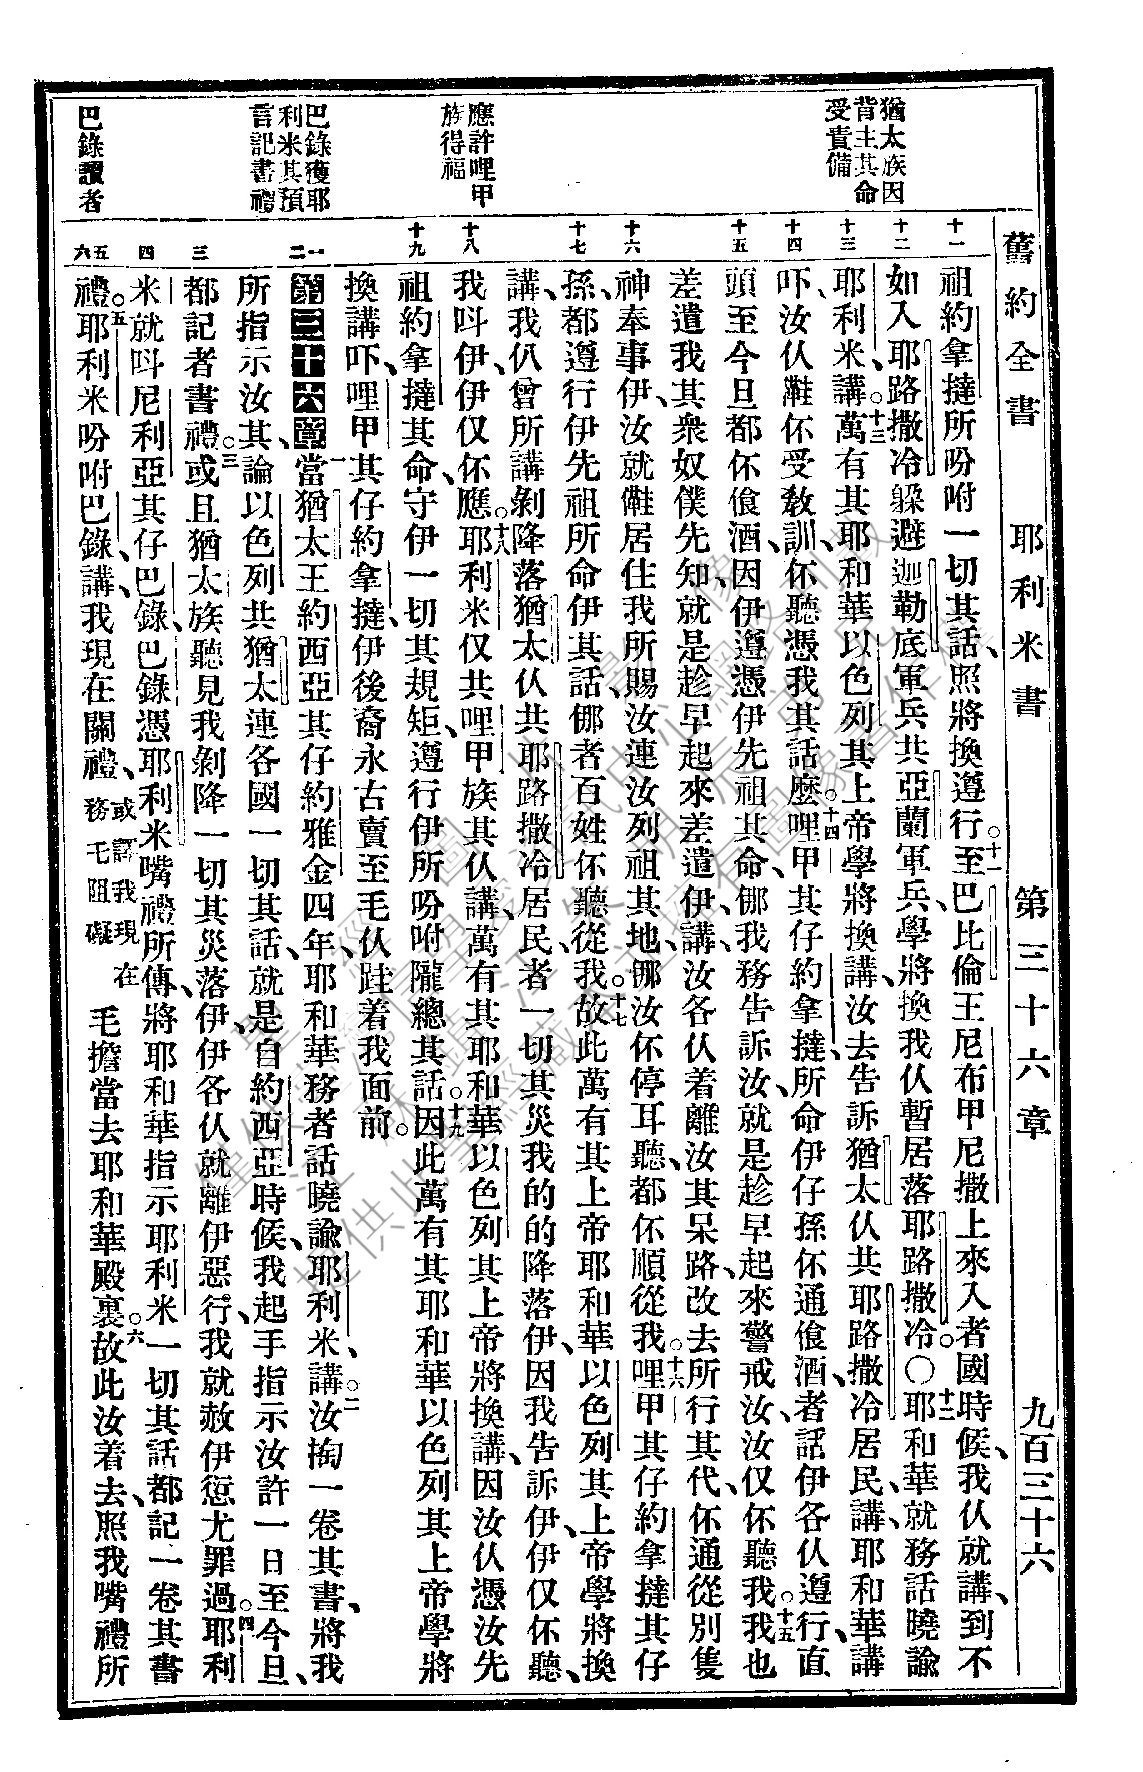 舊約全書 耶利米書 第三十六章 九百三十六
猶太族因
背主其命
受責備
應許哩甲
族得福
巴錄獲耶
利米其預
言記書禮
巴錄讀者
十一
十二
十三
十四
十五
十六
十七
十八
十九
一
二
三
四
五
六
祖約拿撻所吩咐一切其話、照將換遵行。十一至巴比倫王尼布甲尼撒上來入者國時候、我仈就講、到不
如入耶路撒冷、躲避迦勒底軍兵共亞蘭軍兵、學將換我仈暫居落耶路撒冷。○十二耶和華就務話曉諭
耶利米講、十三萬有其耶和華以色列其上帝學將換講、汝去告訴猶太仈共耶路撒冷居民、講、耶和華講
吓、汝仈難伓受敎訓、伓聽憑我其話麼。十四哩甲其仔約拿撻、所命伊仔孫伓通飲酒、者話伊各仈遵行、直
頭至今旦都伓飲酒、因伊遵憑伊先祖其命、㑚我務告訴汝、就是趁早起來警戒汝、汝仅伓聽我。十五我也
差遣我其衆奴僕先知、就是趁早起來差遣伊、講、汝各仈着離汝其呆路、改去所行其代、伓通從別隻
神奉事伊、汝就難居住我所賜汝連汝列祖其地、㑚汝伓停耳聽、都伓順從我。十六哩甲其仔約拿撻其仔
孫、都遵行伊先祖所命伊其話、㑚者百姓伓聽從我。十七故此萬有其上帝耶和華以色列其上帝學將換
講、我仈曾所講剝降落猶太仈共耶路撒冷居民者一切其災、我的的降落伊、因我告訴伊、伊仅伓聽、
我呌伊、伊仅伓應。十八耶利米仅共哩甲族其仈講、萬有其耶和華以色列其上帝將換講、因汝仈憑汝先
祖約拿撻其命、守伊一切其規矩、遵行伊所吩咐隴總其話。十九因此萬有其耶和華以色列其上帝學將
換講吓、哩甲其仔約拿撻、伊後裔永古賣至毛仈跬着我面前。
第三十六章 一當猶太王約西亞其仔約雅金四年、耶和華務者話曉諭耶利米、講。二汝掏一卷其書、將我
所指示汝其、論以色列共猶太連各國一切其話、就是自約西亞時候、我起手指示汝許一日至今旦、
都記者書禮。三或且猶太族聽見我剝降一切其災落伊、伊各仈就離伊惡行、我就赦伊愆尤罪過。四耶利
米就呌尼利亞其仔巴錄、巴錄憑耶利米嘴禮所傳、將耶和華指示耶利米一切其話、都記一卷其書
禮。五耶利米吩咐巴錄、講、我現在關禮、或譯我現在務乇阻礙毛擔當去耶和華殿裏。六故此汝着去、照我嘴禮所